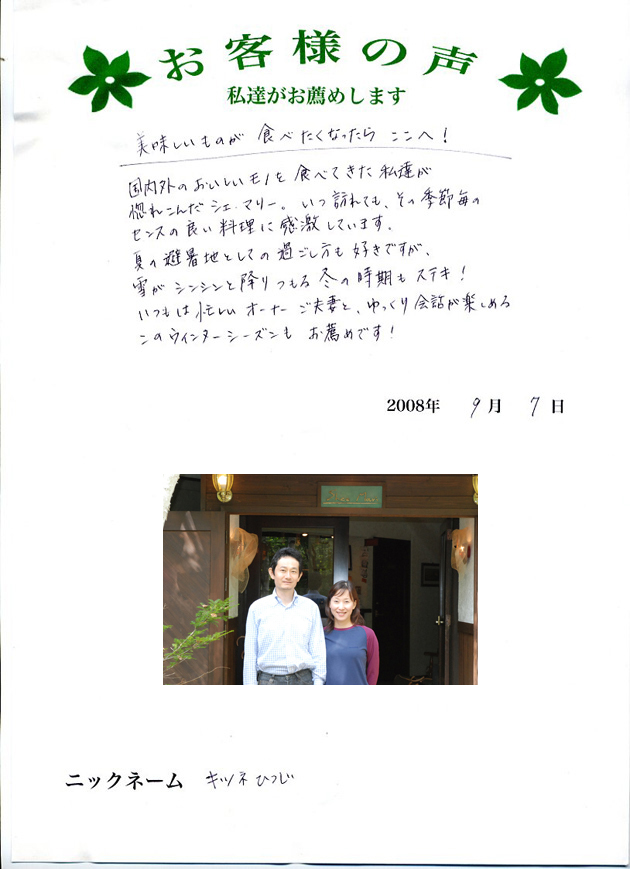 お客様の声
私達がお薦めします
美味しいものが 食べたくなったら ここへ!
国内外のおいしいモノを 食べてきた 私達が
惚れこんだ シェ・マリー。いつ訪れても、その季節毎の
センスの良い料理に感激しています。
夏の避暑地としての過ごし方も好きですが、
雪がシンシンと降りつもる冬の時期もステキ!
いつもは忙しいオーナーご夫妻と、ゆっくり会話が楽しめる
このウィンターシーズンも お薦めです!
2008年 9月 7日
ニックネーム キツネひつじ